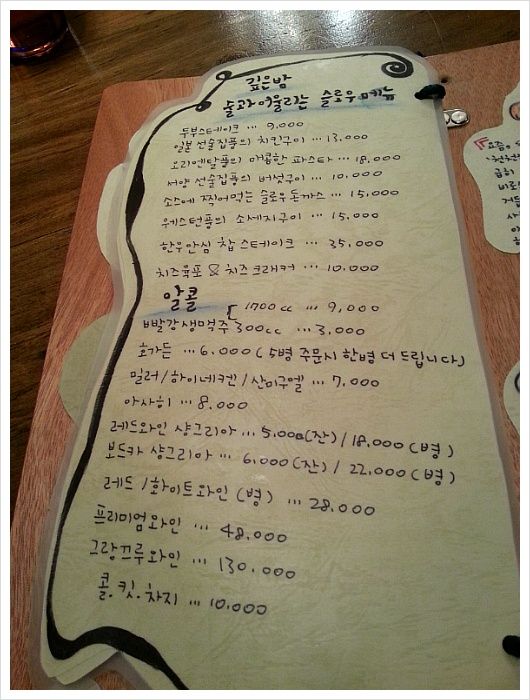 깊은밤
술과 어울리는 슬로우 메뉴
두부스테이크 ... 9,000
일본 선술집풍의 치킨구이 ... 13,000
오리엔탈풍의 매콤한 파스타 ... 18,000
서양 선술집풍의 버섯구이 ... 10,000
소스에 찍어먹는 슬로우 돈까스 ... 15,000
웨스턴풍의 소세지구이 ... 15,000
한우안심 찹스테이크 ... 35,000
치즈육포 & 치즈크래커 ... 10,000
알콜
[ 1700cc ... 9,000
빨강생맥주 300cc ... 3,000
호가든 ... 6,000 (5병 주문시 한병 더 드립니다)
밀러/하이네켄/산미구엘 ... 7,000
아사히 ... 8,000
레드와인 샹그리아 ... 5,000(잔)/18,000(병)
보드카 샹그리아 ... 6,000(잔)/22,000(병)
레드/화이트와인(병) ... 28,000
프리미엄와인 ... 48,000
그랑끄루와인 ... 130,000
콜.킷.차지 ... 10,000